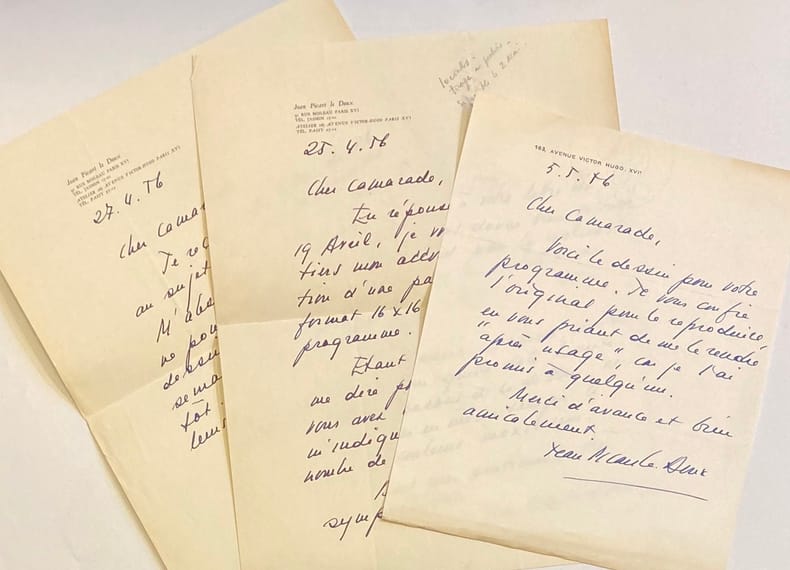 Jean Picart le Doux
51 RUE BOILEAU PARIS XVI
TEL. JASMIN
ATELIER 163 AVENUE VICTOR-HUGO PARIS XVI
TEL. PASSY
27.4.56
Cher Camar
Je re
au sujet
M'abs
ne pou
dessin
sema
tôt
leurs
Jean Picart le Doux
51 RUE BOILEAU PARIS XVI
TEL. JASMIN
ATELIER 163 AVENUE VICTOR-HUGO PARIS XVI
TEL. PASSY
25.4.56
Cher Camarade,
En réponse
19 Avril, je vo
tiens mon acco
tion d'une pa
format 16 x 16
programme.
Etant
me dire
vous avez
m'indiqu
nombre de
symp
163, AVENUE VICTOR HUGO, XVI
5.5.56
Cher Camarade,
Voici le dessin pour votre
programme. Je vous confie
l'original pour le reproduire,
en vous priant de me le rendre
"après usage", car je l'ai
promis à quelqu'un.
Merci d'avance et bien
amicalement.
Jean Picart le Doux